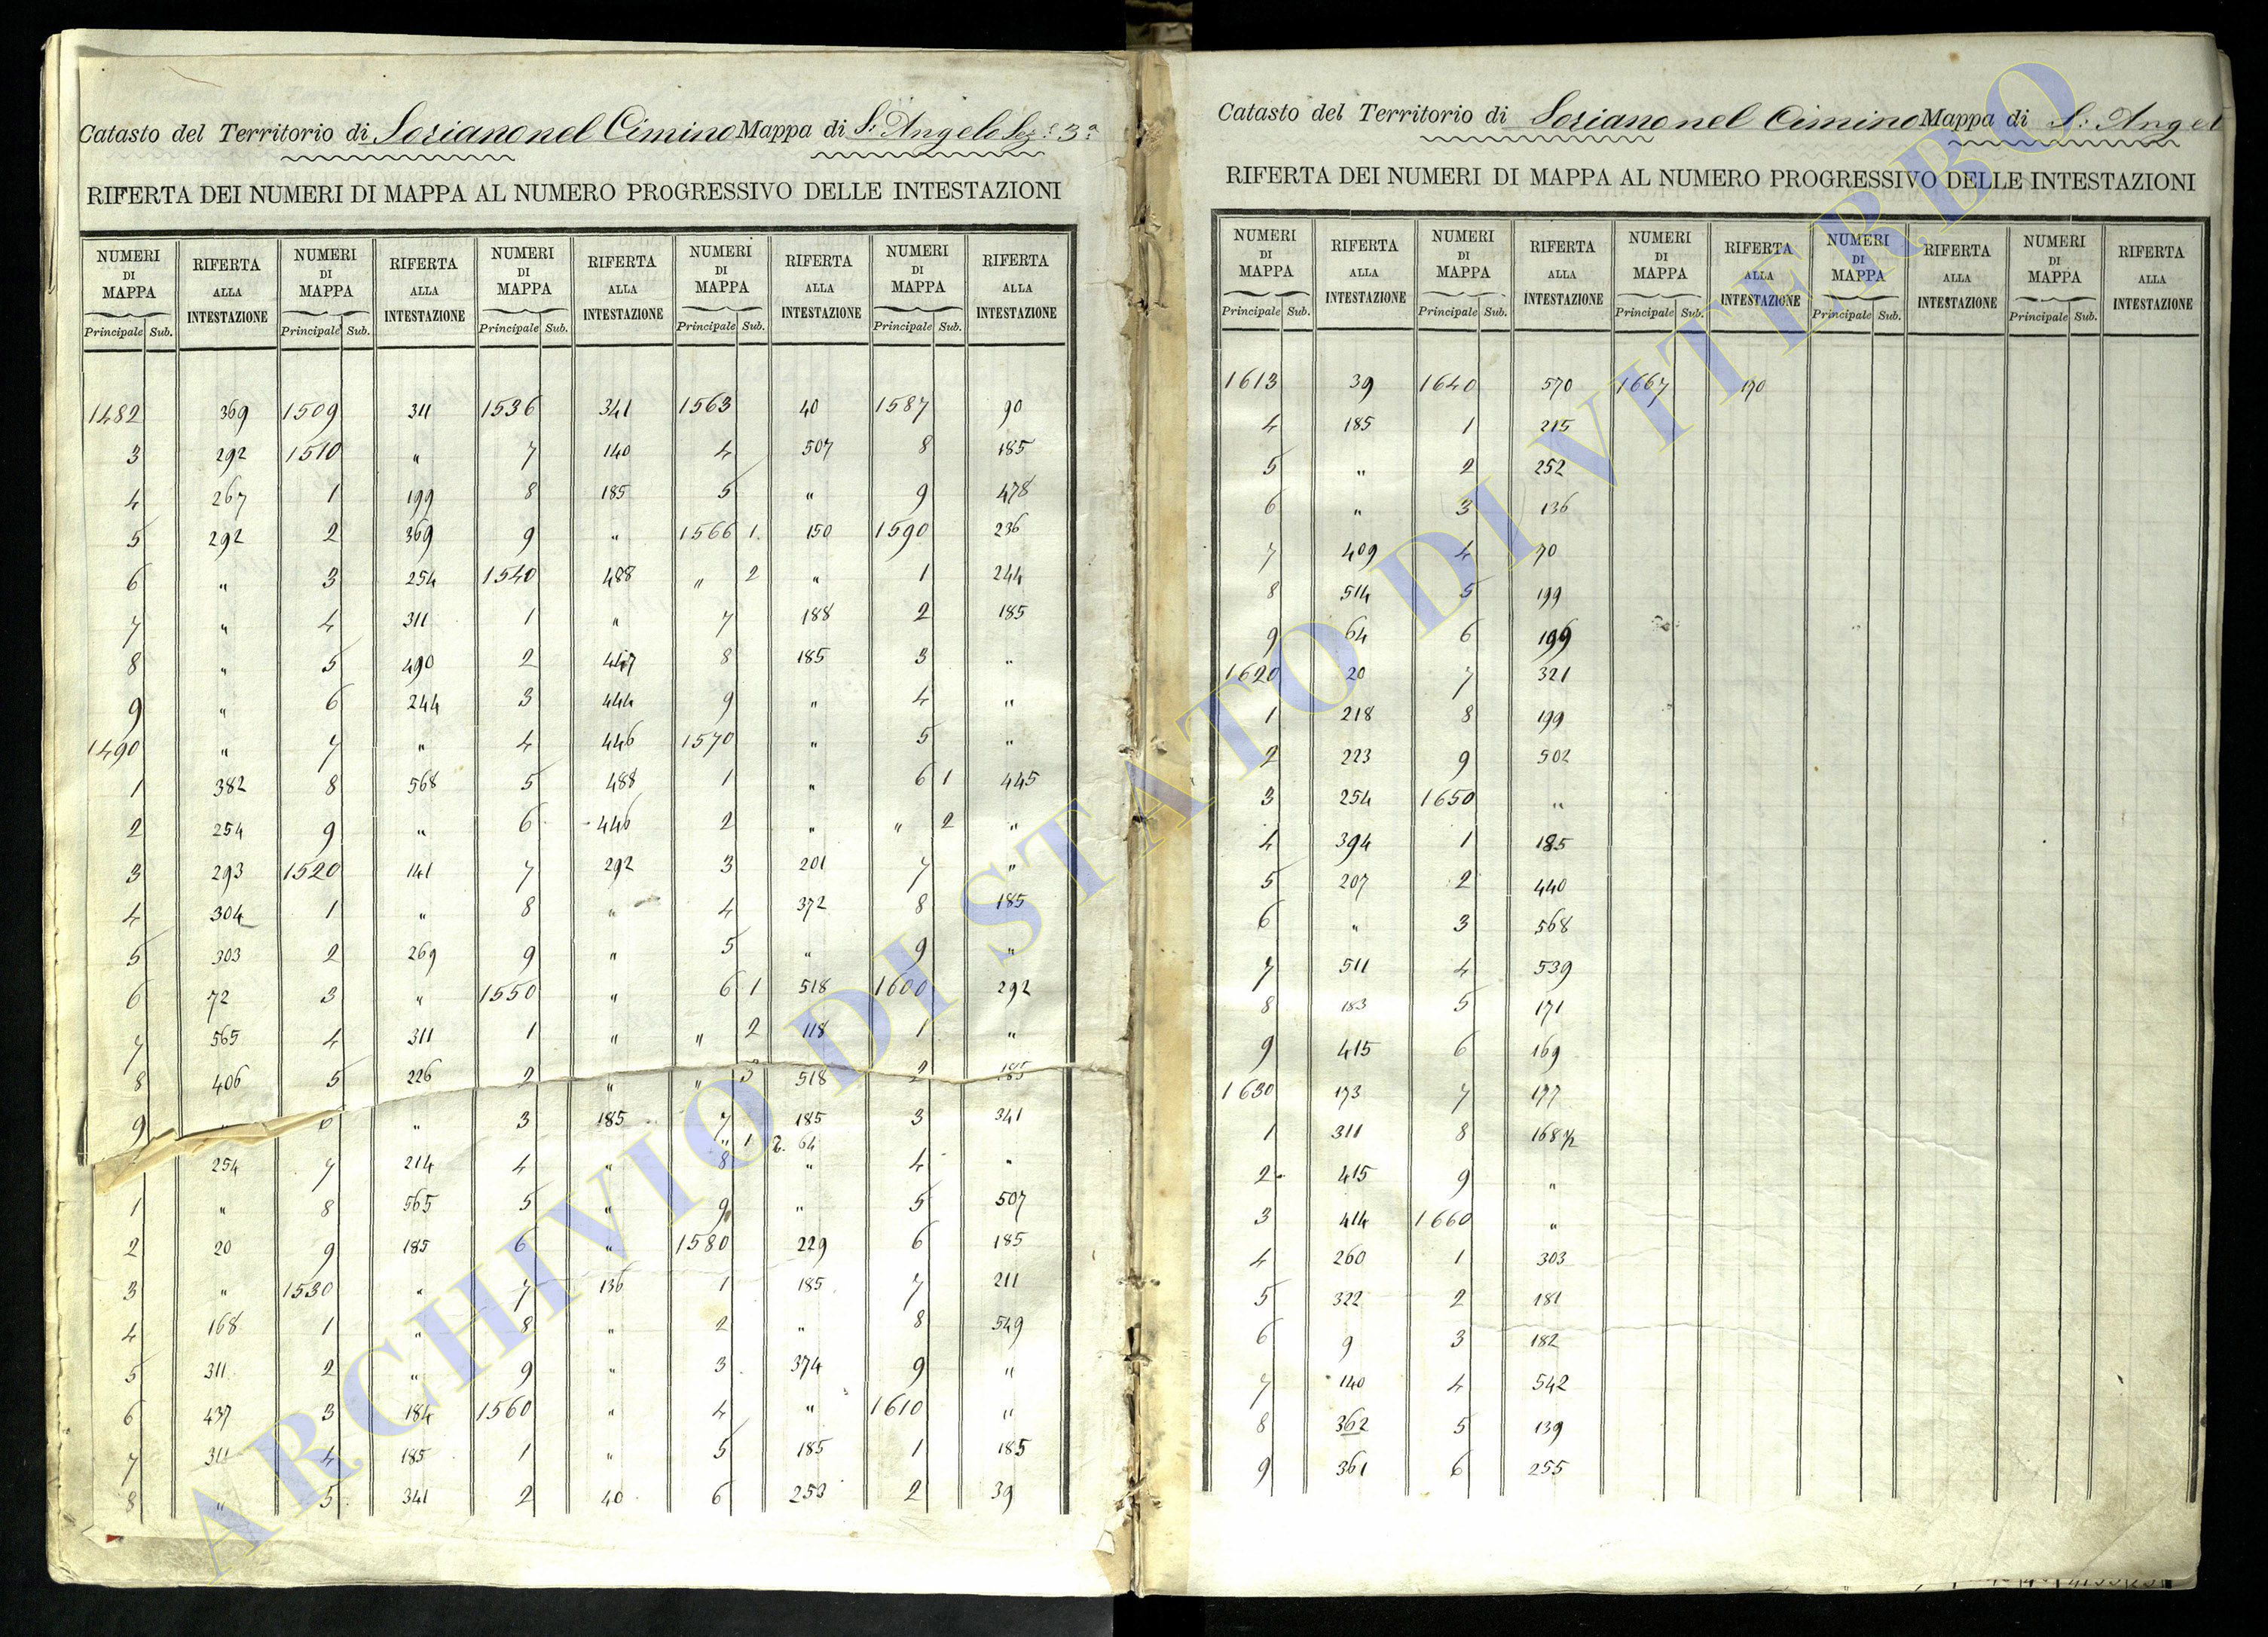 Catasto del Territorio di Soriano nel Cimino Mappa di S. Angelo Sez. 3ª
RIFERTA DEI NUMERI DI MAPPA AL NUMERO PROGRESSIVO DELLE INTESTAZIONI
NUMERI DI MAPPA RIFERTA ALLA INTESTAZIONE NUMERI DI MAPPA RIFERTA ALLA INTESTAZIONE NUMERI DI MAPPA RIFERTA ALLA INTESTAZIONE NUMERI DI MAPPA RIFERTA ALLA INTESTAZIONE NUMERI DI MAPPA RIFERTA ALLA INTESTAZIONE
Principale Sub. Principale Sub. Principale Sub. Principale Sub. Principale Sub.
1482 369 1509 311 1536 341 1563 40 1587 90
3 292 1510 " 7 140 4 507 8 185
4 267 1 199 8 185 5 " 9 478
5 292 2 369 9 " 1566 1 150 1590 236
6 " 3 254 1540 488 " 2 " 1 244
7 " 4 311 1 " 7 188 2 185
8 " 5 490 2 447 8 185 3 "
9 " 6 244 3 444 9 " 4 "
1490 " 7 " 4 446 1570 " 5 "
1 382 8 568 5 488 1 " 6 1 445
2 254 9 " 6 446 2 " " 2 "
3 293 1520 141 7 292 3 201 7 "
4 304 1 " 8 " 4 372 8 185
5 303 2 269 9 " 5 " 9 "
6 72 3 " 1550 " 6 1 518 1600 292
7 565 4 311 1 " " 2 118 1 "
8 406 5 226 2 " " 3 518 2 185
9 " 6 " 3 185 7 185 3 341
" 1 2. 64
254 7 214 4 " 8 " 4 "
1 " 8 565 5 " 9 " 5 507
2 20 9 185 6 " 1580 229 6 185
3 " 1530 " 7 136 1 185 7 211
4 168 1 " 8 " 2 " 8 549
5 311 2 " 9 " 3 374 9 "
6 437 3 184 1560 " 4 " 1610 "
7 311 4 185 1 " 5 185 1 185
8 " 5 341 2 40 6 253 2 39
Catasto del Territorio di Soriano nel Cimino Mappa di S. Angel
RIFERTA DEI NUMERI DI MAPPA AL NUMERO PROGRESSIVO DELLE INTESTAZIONI
NUMERI DI MAPPA RIFERTA ALLA INTESTAZIONE NUMERI DI MAPPA RIFERTA ALLA INTESTAZIONE NUMERI DI MAPPA RIFERTA ALLA INTESTAZIONE NUMERI DI MAPPA RIFERTA ALLA INTESTAZIONE NUMERI DI MAPPA RIFERTA ALLA INTESTAZIONE
Principale Sub. Principale Sub. Principale Sub. Principale Sub. Principale Sub.
1613 39 1640 570 1667 170
4 185 1 215
5 " 2 252
6 " 3 136
7 409 4 70
8 514 5 199
9 64 6 199
1620 20 7 321
1 218 8 199
2 223 9 502
3 254 1650 "
4 394 1 185
5 207 2 440
6 " 3 568
7 511 4 539
8 183 5 171
9 415 6 169
1630 173 7 177
1 311 8 168½
2 415 9 "
3 414 1660 "
4 260 1 303
5 322 2 181
6 9 3 182
7 140 4 542
8 362 5 139
9 361 6 255
ARCHIVIO DI STATO DI VITERBO